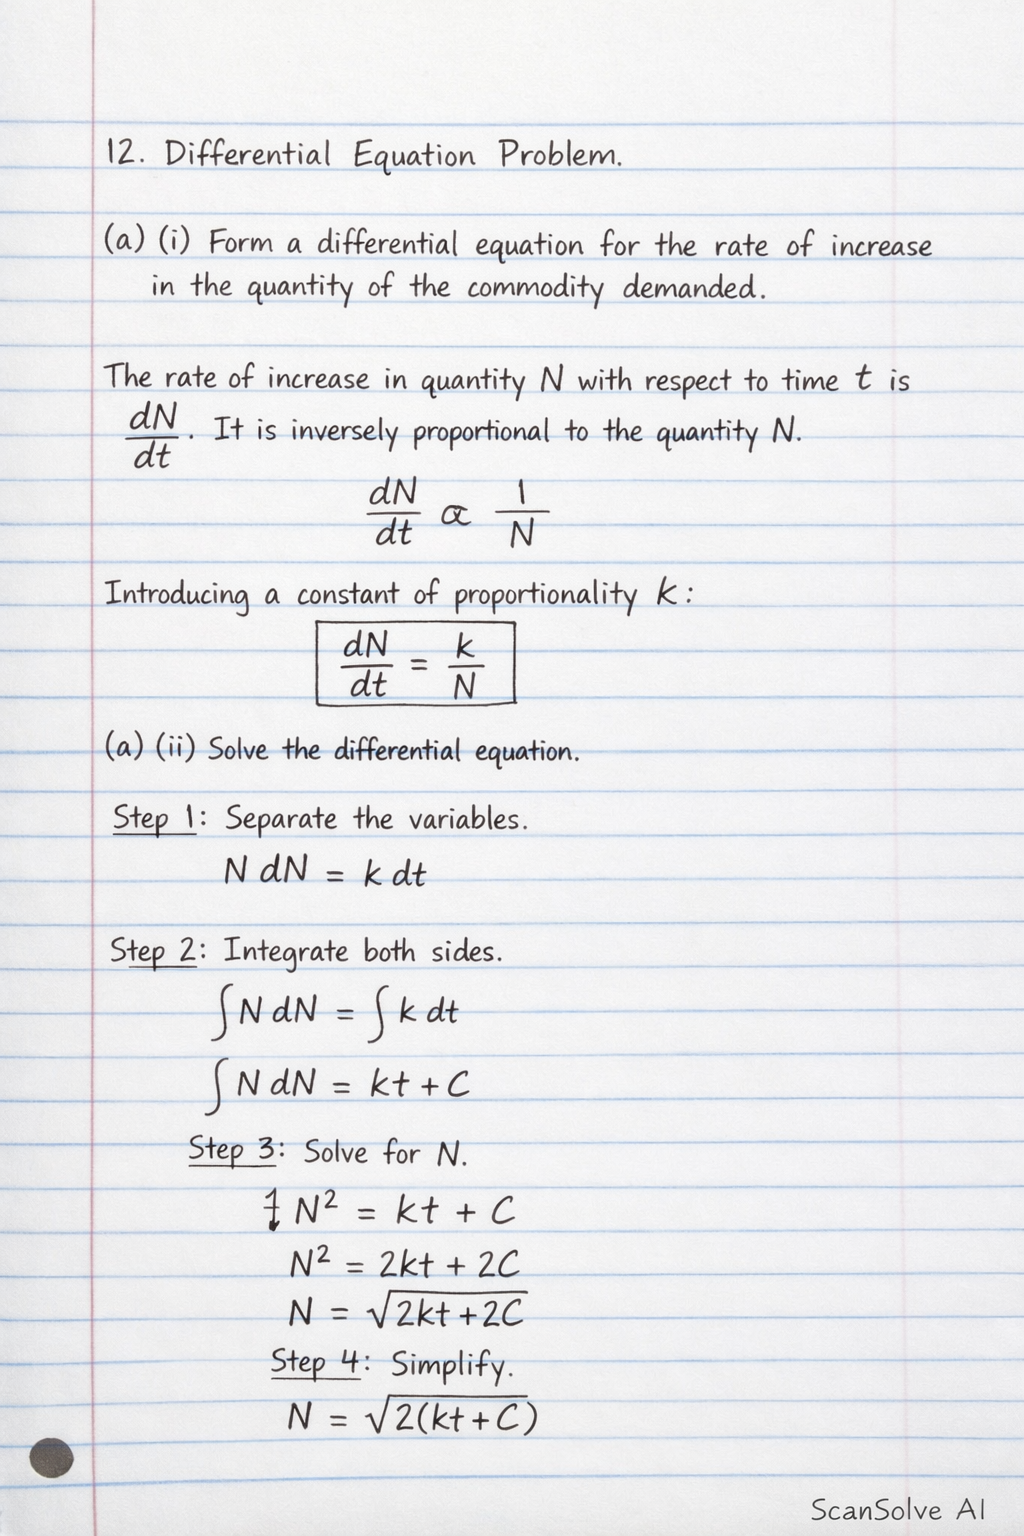 12. Differential Equation Problem.
(a) (i) Form a differential equation for the rate of increase
in the quantity of the commodity demanded.
The rate of increase in quantity N with respect to time t is
dN/dt. It is inversely proportional to the quantity N.
dN/dt ∝ 1/N
Introducing a constant of proportionality k:
dN/dt = k/N
(a) (ii) Solve the differential equation.
Step 1: Separate the variables.
N dN = k dt
Step 2: Integrate both sides.
∫ N dN = ∫ k dt
∫ N dN = kt + C
Step 3: Solve for N.
N² = kt + C
N² = 2kt + 2C
N = √(2kt + 2C)
Step 4: Simplify.
N = √2(kt + C)
ScanSolve AI